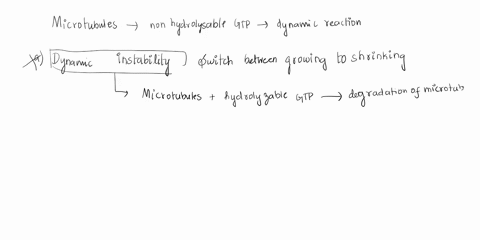 Microtubules → non hydrolysable GTP → dynamic reaction
*) Dynamic instability ) switch between growing to shrinking
Microtubules + hydrolyzable GTP → degradation of microtub